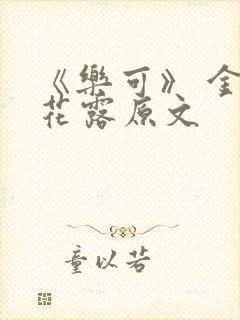 《樂可》金
花露原文
童以若